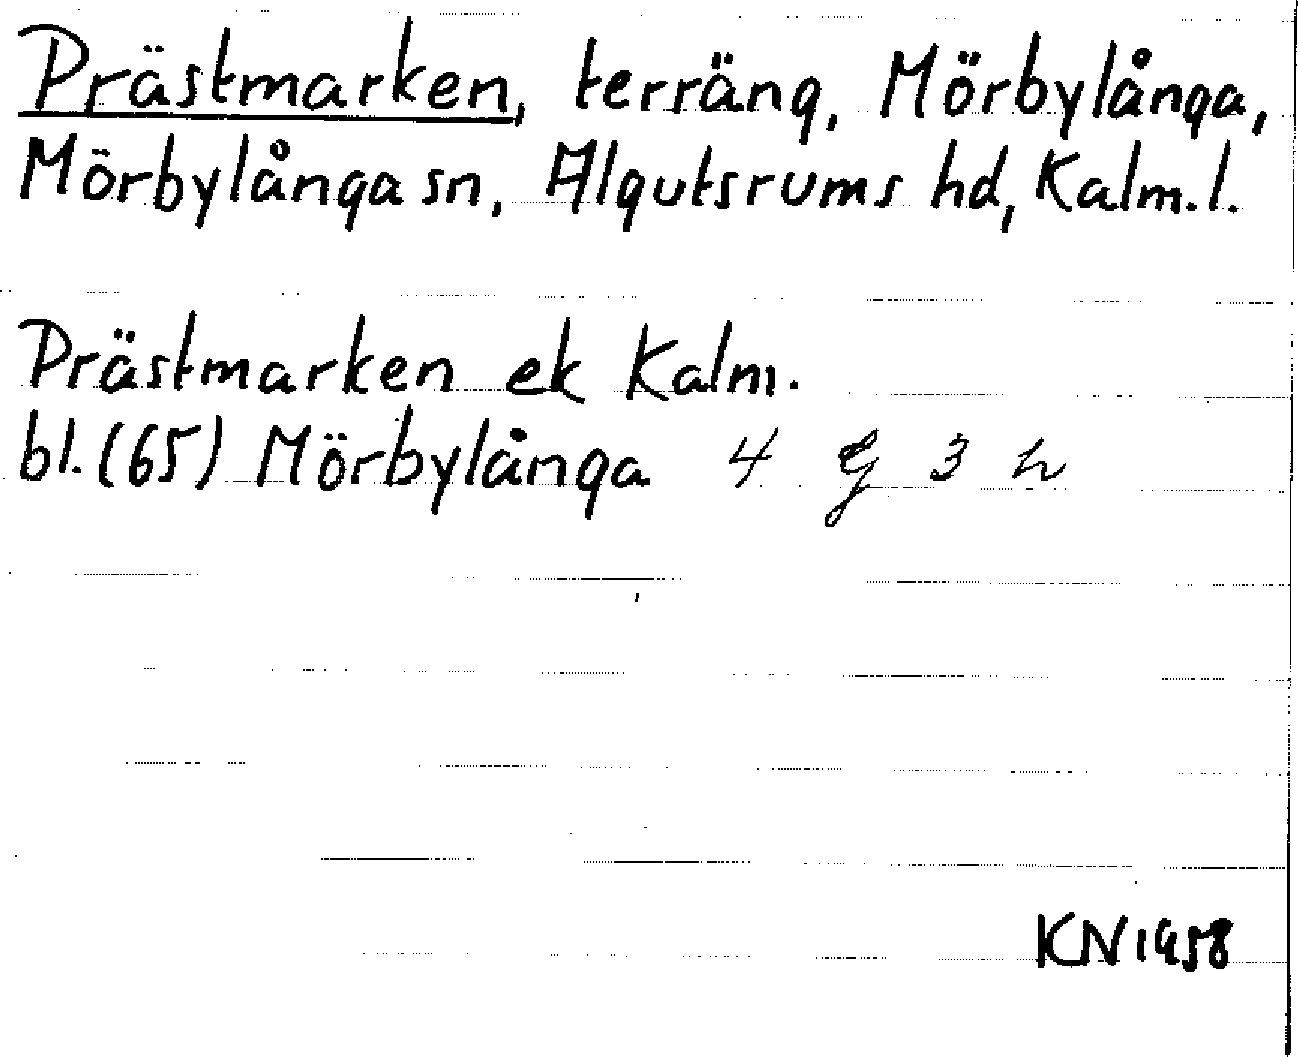 Prästmarken, terräng, Mörbylånga,
Mörbylånga sn, Algutsrums hd, Kalm. l.
Prästmarken ek Kalm.
bl. (65) Mörbylånga 4 G 3 h
KN 1958